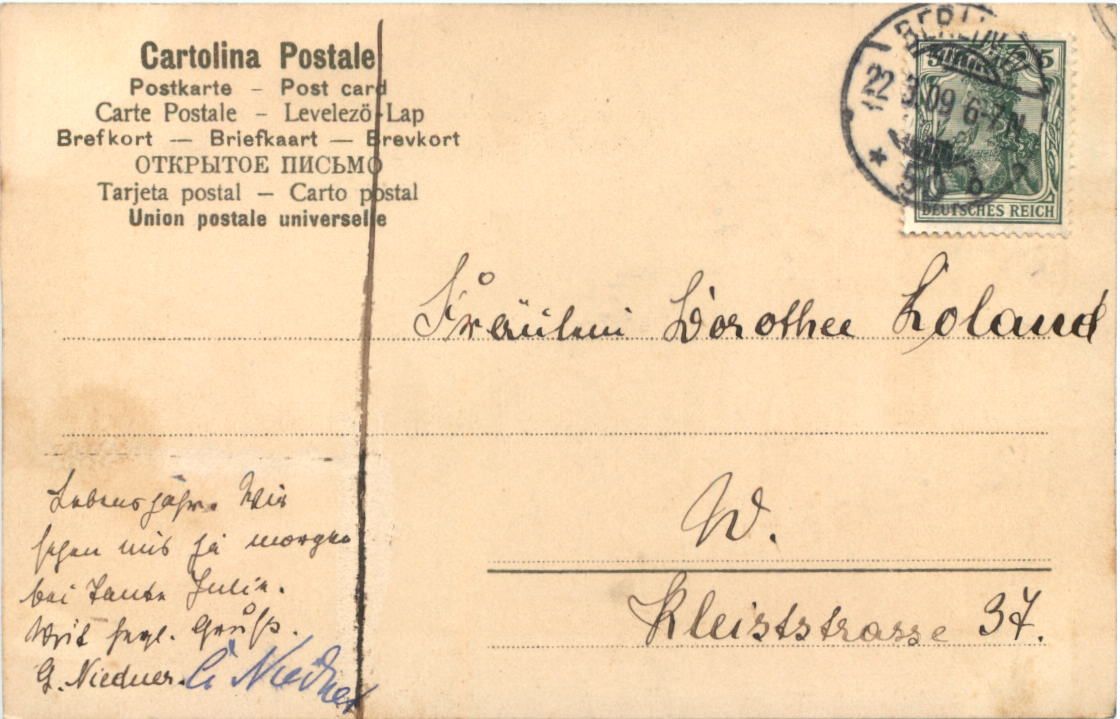 Cartolina Postale
Postkarte – Post card
Carte Postale – Levelező-Lap
Brefkort — Briefkaart — Brevkort
ОТКРЫТОЕ ПИСЬМО
Tarjeta postal – Carto postal
Union postale universelle
BERLIN
22.3.09 6-7 N.
* 50
5
DEUTSCHES REICH
Fräulein Dorothee Loland
W.
Kleiststrasse 37.
Lebensjahr. Wir
sehen uns ja morgen
bei Tante Julie.
Mit hrzl. Gruß.
G. Niedner. G Niedner